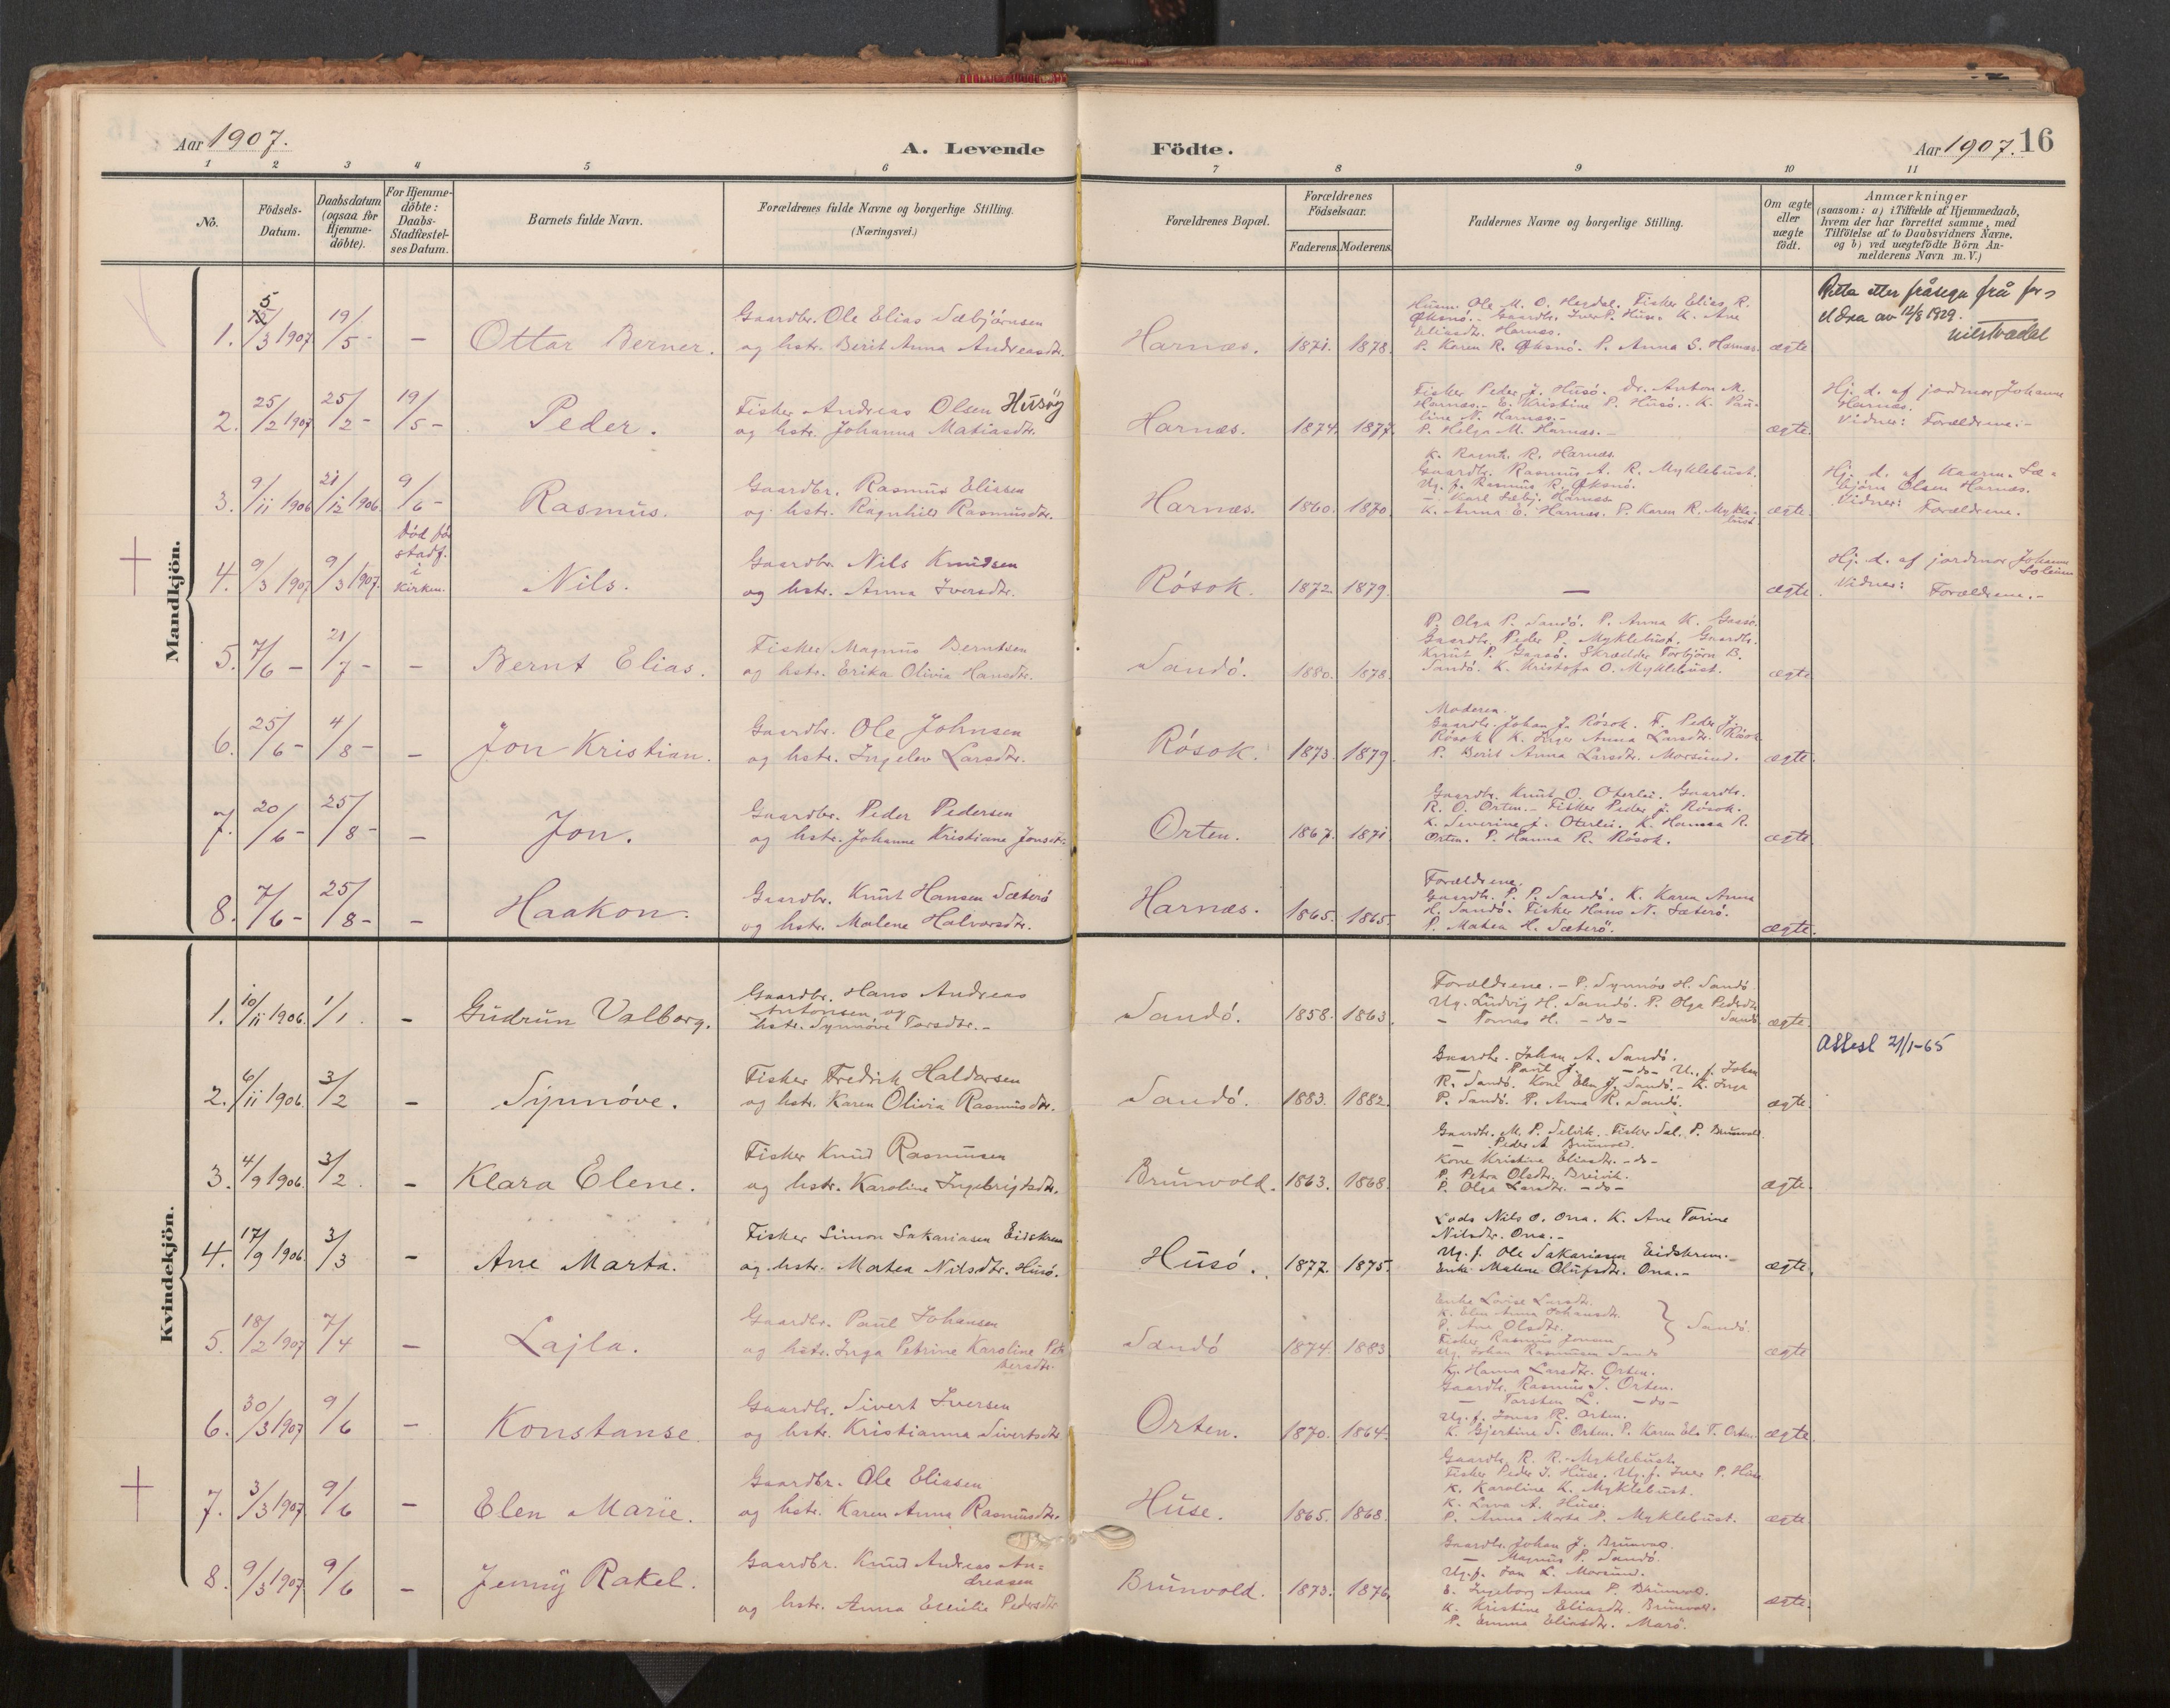 Aar 1907.
A. Levende
Födte.
Aar 1907. 16
1 2 3 4 5 6 7 8 9 10 11
No.
Födsels-
Datum.
Daabsdatum
(ogsaa for
Hjemme-
döbte).
For Hjemme-
döbte:
Daabs-
Stadfæstel-
ses Datum.
Barnets fulde Navn.
Forældrenes fulde Navne og borgerlige Stilling.
(Næringsvei.)
Forældrenes Bopæl.
Forældrenes
Födselsaar.
Faderens. Moderens.
Faddernes Navne og borgerlige Stilling.
Om ægte
eller
uægte
födt.
Anmærkninger
(saasom: a) i Tilfælde af Hjemmedaab,
hvem der har forrettet samme, med
Tilföielse af to Daabsvidners Navne.
og b) ved uægtefödte Börn An-
melderens Navn m. V.)
Mandkjön.
1. 5/3 1907 19/5 - - Ottar Berner.
Gaardbr. Ole Elias Sæbjörnsen
og hstr. Berit Anna Andreasdtr.
Harnæs. 1871. 1878.
Husm. Ole M. O. Hegdal. Fisker Elias R.
Öksnö. - Gaardbr. Iver P. Huse. K. Ane
Eliasdtr. Harnæs.
P. Karen R. Öksnö. P. Anna S. Harnæs.
ægte
Retta etter fråsegn frå for-
eldra av 12/8 1929.
2. 25/2 1907 25/2 - 19/5 - Peder.
Fisker Andreas Olsen Husöy
og hstr. Johanna Matiasdtr.
Harnæs. 1874. 1877.
Fisker Peder J. Husö. Dr. Anton M.
Harnæs. - E. Kristine P. Husö. - K. Pau-
line N. Harnæs. -
P. Helga M. Harnæs. -
ægte.
Hj. d. af jordmor Johanne
Harnæs.
Vidner: Forældrene. -
3. 9/11 1906 21/12 1906. 9/6 - Rasmus.
Gaardbr. Rasmus Eliasen
og hstr. Ragnhild Rasmusdtr.
Harnæs. 1860. 1870.
K. Ragnh. R. Harnæs.
Gaardbr. Rasmus A. R. Myklebust.
Ug. f. Rasmus R. Öksnö.
- Karl Sæbj. Harnæs
K. Anna E. Harnæs. P. Karen R. Mykle-
bust.
ægte.
Hj. d. af Kaarm. Sæ-
björn Olsen Harnæs.
Vidner: Forældrene.
4. 9/3 1907 9/3 1907.
Död för
stadf.
i
Kirken.
Nils.
Gaardbr. Nils Knudsen
og hstr. Anna Iversdtr.
Rösok. 1872. 1879. - ægte.
Hj. d. af jordmor Johanne
Soleim
Vidner: Forældrene. -
5. 7/6 - 21/7 - - Bernt Elias.
Fisker Magnus Berntsen
og hstr. Erika Olivia Hansdtr.
Sandö. 1880. 1878.
P. Olga P. Sandö. P. Anna K. Gaasö.
Gaardbr. Peder P. Myklebust. Gaardbr.
Knut P. Gaasö. Skrædder Torbjörn B.
Sandö. K. Kristofa O. Myklebust.
ægte
6. 25/6 - 4/8 - - Jon Kristian.
Gaardbr. Ole Johnsen
og hstr. Ingelev Larsdtr.
Rösok. 1873. 1879.
Moderen.
Gaardbr. Johan J. Rösok. F. Peder J.
Rösok. K. Inger Anna Larsdtr. Rösok
P. Berit Anna Larsdtr. Morsund.
ægte.
7. 20/6 - 25/8 - - Jon.
Gaardbr. Peder Pedersen
og hstr. Johanne Kristiane Jonsdtr.
Orten. 1867. 1871.
Gaardbr. Knut O. Oterlei. Gaardbr.
R. O. Orten. - Fisker Peder J. Rösok.
K. Severine J. Oterlei. K. Hansea R.
Orten. P. Hanna R. Rösok.
ægte
8. 7/6 - 25/8 - - Haakon.
Gaardbr. Knut Hansen Sæterö
og hstr. Malene Halvorsdtr.
Harnæs. 1865. 1865.
Forældrene.
Gaardb. P. P. Sandö. K. Karen Anna
H. Sandö. Fisker Hans N. Sæterö.
P. Matea H. Sæterö.
ægte.
Kvindekjön.
1. 10/11 1906. 1/1. - Gudrun Valborg.
Gaardbr. Hans Andreas
Antonsen og
hstr. Synnöve Torsdtr. -
Sandö. 1858. 1863.
Forældrene. - P. Synnöv H. Sandö
Ug. Ludvig H. Sandö. P. Olga Pedsdtr.
- Tomas H. - do - Sandö
ægte.
2. 6/11 1906. 3/2 - Synnöve.
Fisker Fredrik Haldorsen
og hstr. Karen Olivia Rasmusdtr.
Sandö. 1883. 1882.
Gaardbr. Johan A. Sandö.
- Paul J. - do - U. f. Johan
R. Sandö. Kone Elen J. Sandö. - K. Inga
P. Sandö. P. Anna R. Sandö.
ægte.
Attest 21/1-65
3. 4/9 1906. 3/2. - Klara Elene.
Fisker Knud Rasmusen
og hstr. Karoline Ingebrigtsdtr.
Brunvold. 1863. 1868.
Gaardbr. M. P. Selvik. Fisker Sal. P. Brunvold.
- Peder A. Brunvold.
Kone Kristine Eliasdtr. - do -
P. Petra Olsdtr. Breivik.
P. Olga Larsdtr. - do -
ægte.
4. 17/9 1906. 3/3 - Ane Marta.
Fisker Simon Sakariasen Eidskrem
og hstr. Matea Nilsdtr. Husö.
Husö. 1877. 1875.
Lods Nils O. Ona. K. Ane Torine
Nilsdtr. Ona. -
Ug. f. Ole Sakariasen Eidskrem. -
Enke Malene Olufsdtr. Ona. -
ægte.
5. 18/2 1907 7/4 - Lajla.
Gaardbr. Paul Johansen
og hstr. Inga Petrine Karoline Pet-
tersdtr.
Sandö 1874. 1883.
Enke Lovise Larsdtr.
K. Elen Anna Johansdtr.
P. Ane Olsdtr.
Fisker Rasmus Jonsen
Sandö.
Ug. Johan Rasmusen Sandö
ægte
6. 30/3 1907 9/6 - Konstanse.
Gaardbr. Sivert Iversen
og hstr. Kristianna Sivertsdtr.
Orten. 1870. 1864.
K. Hanna Larsdtr. Orten.
Gaardbr. Rasmus J. Orten.
- Torsten L. - do -
Ug. f. Jonas R. Orten.
K. Gjertine S. Orten. P. Karen El. T. Orten.
ægte.
7. 3/3 1907. 9/6 - Elen Marie.
Gaardbr. Ole Eliasen
og hstr. Karen Anna Rasmusdtr.
Huse. 1865. 1868.
Gaardb. R. R. Myklebust.
Fisker Peder J. Huse. Ug. f. Iver P. Huse
K. Karoline K. Myklebust.
K. Lava A. Huse.
P. Anna Marta P. Myklebust.
ægte.
8. 9/3 1907 9/6 - Jenny Rakel.
Gaardbr. Knud Andreas An-
dreasen
og hstr. Anna Emilie Pedersdtr.
Brunvold. 1873. 1876.
Gaardbr. Johan J. Brunvold.
- Magnus P. Sandö.
Ug. f. Jon L. Morsund.
E. Ingeborg Anna P. Brunvold.
K. Kristine Eliasdtr. Brunvold.
P. Emma Eliasdtr. Marö.
ægte.